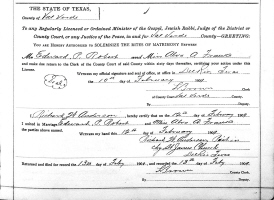 THE STATE OF TEXAS,
County of Val Verde
To any Regularly Licensed or Ordained Minister of the Gospel, Jewish Rabbi, Judge of the District or
County Court, or any Justice of the Peace, in and for Val Verde County—GREETING:
YOU ARE HEREBY AUTHORIZED TO SOLEMNIZE THE RITES OF MATRIMONY BETWEEN
Mr. Edward P. Robert and Miss A
and make due return to the Clerk of the County Court of said County within sixty days thereafter, certifying your action under this License.
Witness my official signature and seal of office, at office in Del Rio Texas
the 10th day of February
Brown
County Clerk
Val Verde County
By Deputy
Richard H. Anderson hereby certify that on the 12th day of February
united in Marriage Edward P. Robert and Miss A
the parties above named.
Witness my hand this 12th day of February
Richard H. Anderson
St James Church
Del Rio Texas
Returned and filed for record the 13th day of Feby and recorded the 13th day of Feby
Brown County Clerk